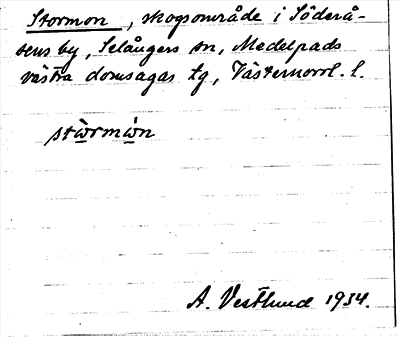 Stormon, skogsområde i Söderå-
sens by, Selångers sn, Medelpads
västra domsagas tg, Västernorrl. l.
stòrmòn
A. Vestlund 1934.